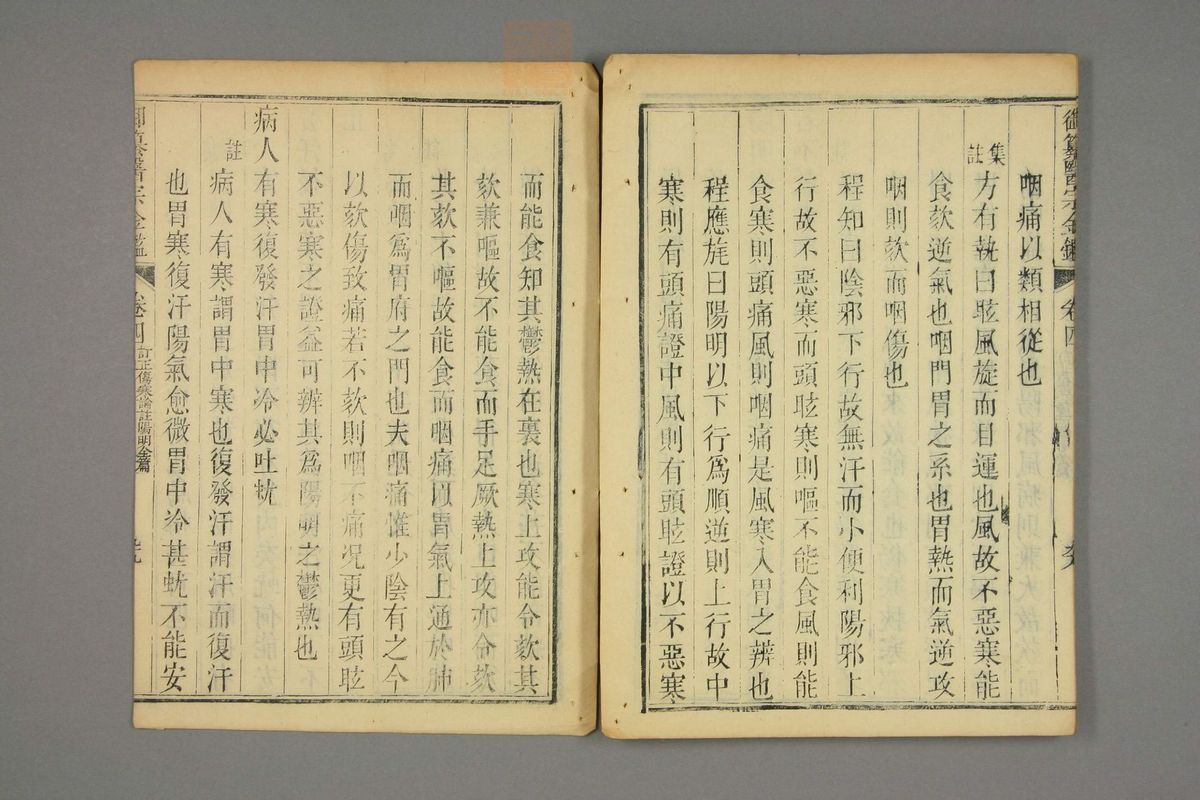 御纂醫宗金鑑 卷四
咽痛以類相從也
集註 方有執曰眩風旋而目運也風故不惡寒能
食欬逆氣也咽門胃之系也胃熱而氣逆攻
咽則欬而咽傷也
程知曰陰邪下行故無汗而小便利陽邪上
行故不惡寒而頭眩寒則嘔不能食風則能
食寒則頭痛風則咽痛是風寒入胃之辨也
程應旄曰陽明以下行爲順逆則上行故中
寒則有頭痛證中風則有頭眩證以不惡寒
而能食知其鬱熱在裏也寒上攻能令欬其
欬兼嘔故不能食而手足厥熱上攻亦令欬
其欬不嘔故能食而咽痛以胃氣上通於肺
而咽爲胃府之門也夫咽痛惟少陰有之今
以欬傷致痛若不欬則咽不痛况更有頭眩
不惡寒之證益可辨其爲陽明之鬱熱也
病人有寒復發汗胃中冷必吐蚘
註 病人有寒謂胃中寒也復發汗謂汗而復汗
也胃寒復汗陽氣愈微胃中冷甚蚘不能安
御纂醫宗金鑑 卷四 訂正傷寒論註陽明全篇